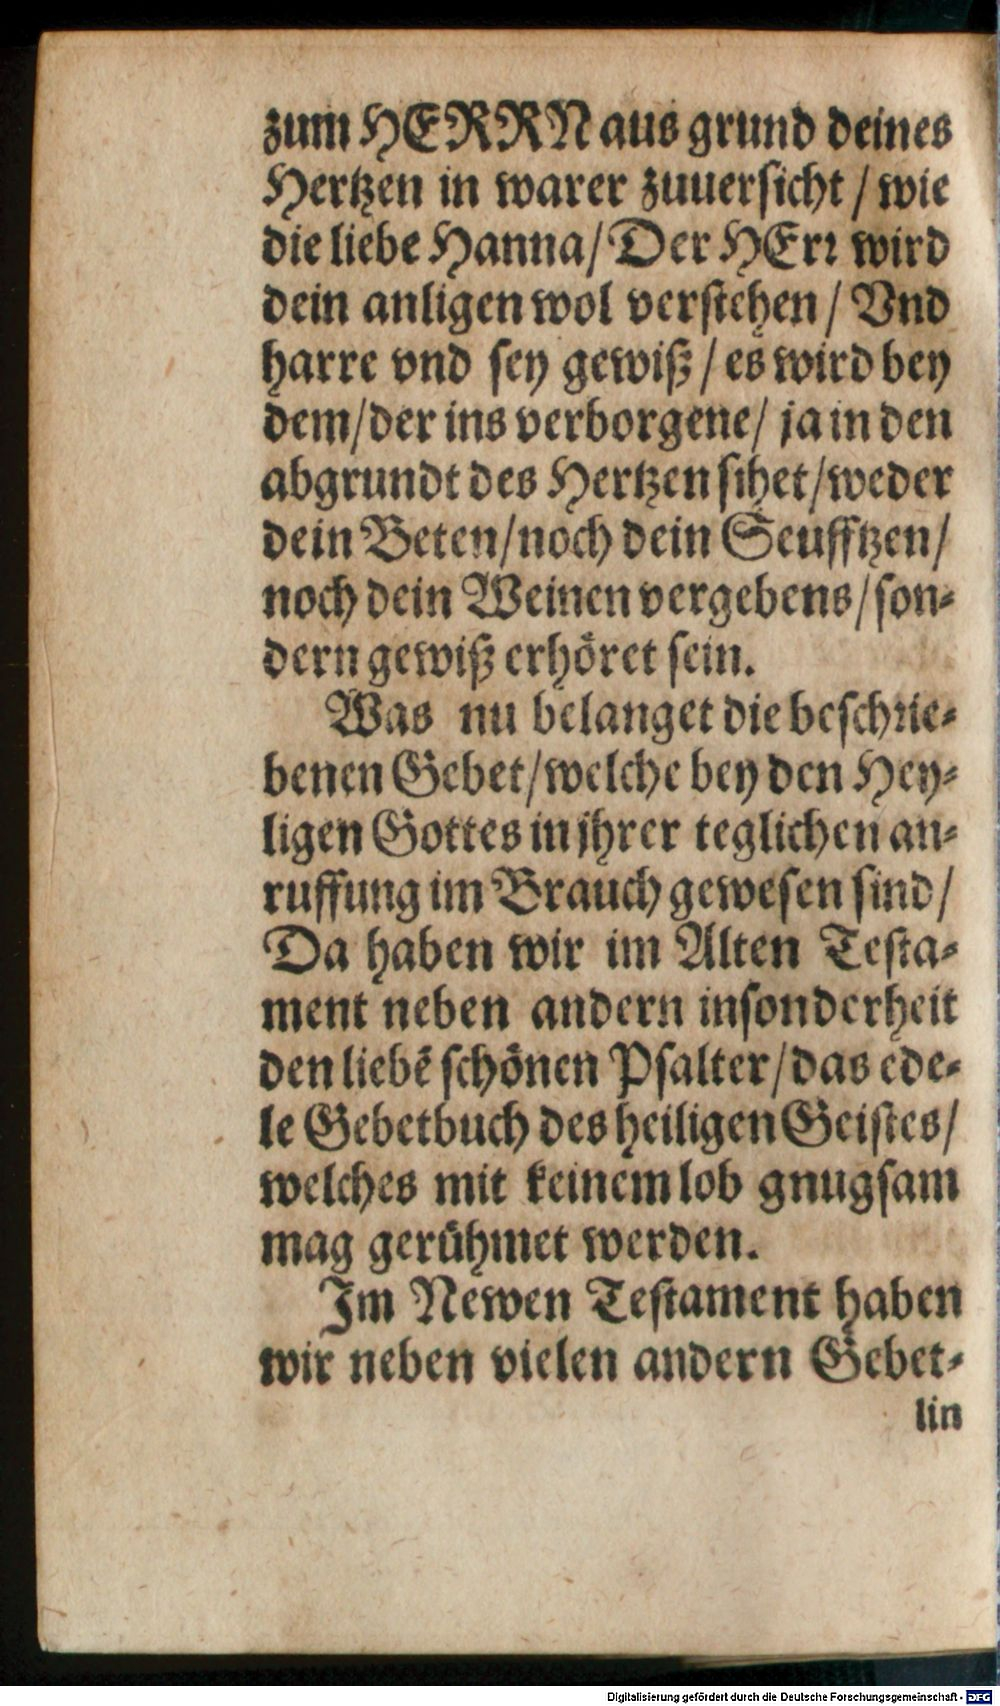 zum HERRN aus grund deines
Hertzen in warer zuuersicht / wie
die liebe Hanna / Der HErr wird
dein anligen wol verstehen / Vnd
harre vnd sey gewiß / es wird bey
dem / der ins verborgene / ja in den
abgrundt des Hertzen sihet / weder
dein Beten / noch dein Seufftzen /
noch dein Weinen vergebens / son-
dern gewiß erhöret sein.
Was nu belanget die beschrie-
benen Gebet / welche bey den Hey-
ligen Gottes in jhrer teglichen an-
ruffung im Brauch gewesen sind /
Da haben wir im Alten Testa-
ment neben andern insonderheit
den liebē schönen Psalter / das ede-
le Gebetbuch des heiligen Geistes /
welches mit keinem lob gnugsam
mag gerühmet werden.
Im Newen Testament haben
wir neben vielen andern Gebet-
lin
Digitalisierung gefördert durch die Deutsche Forschungsgemeinschaft - DFG